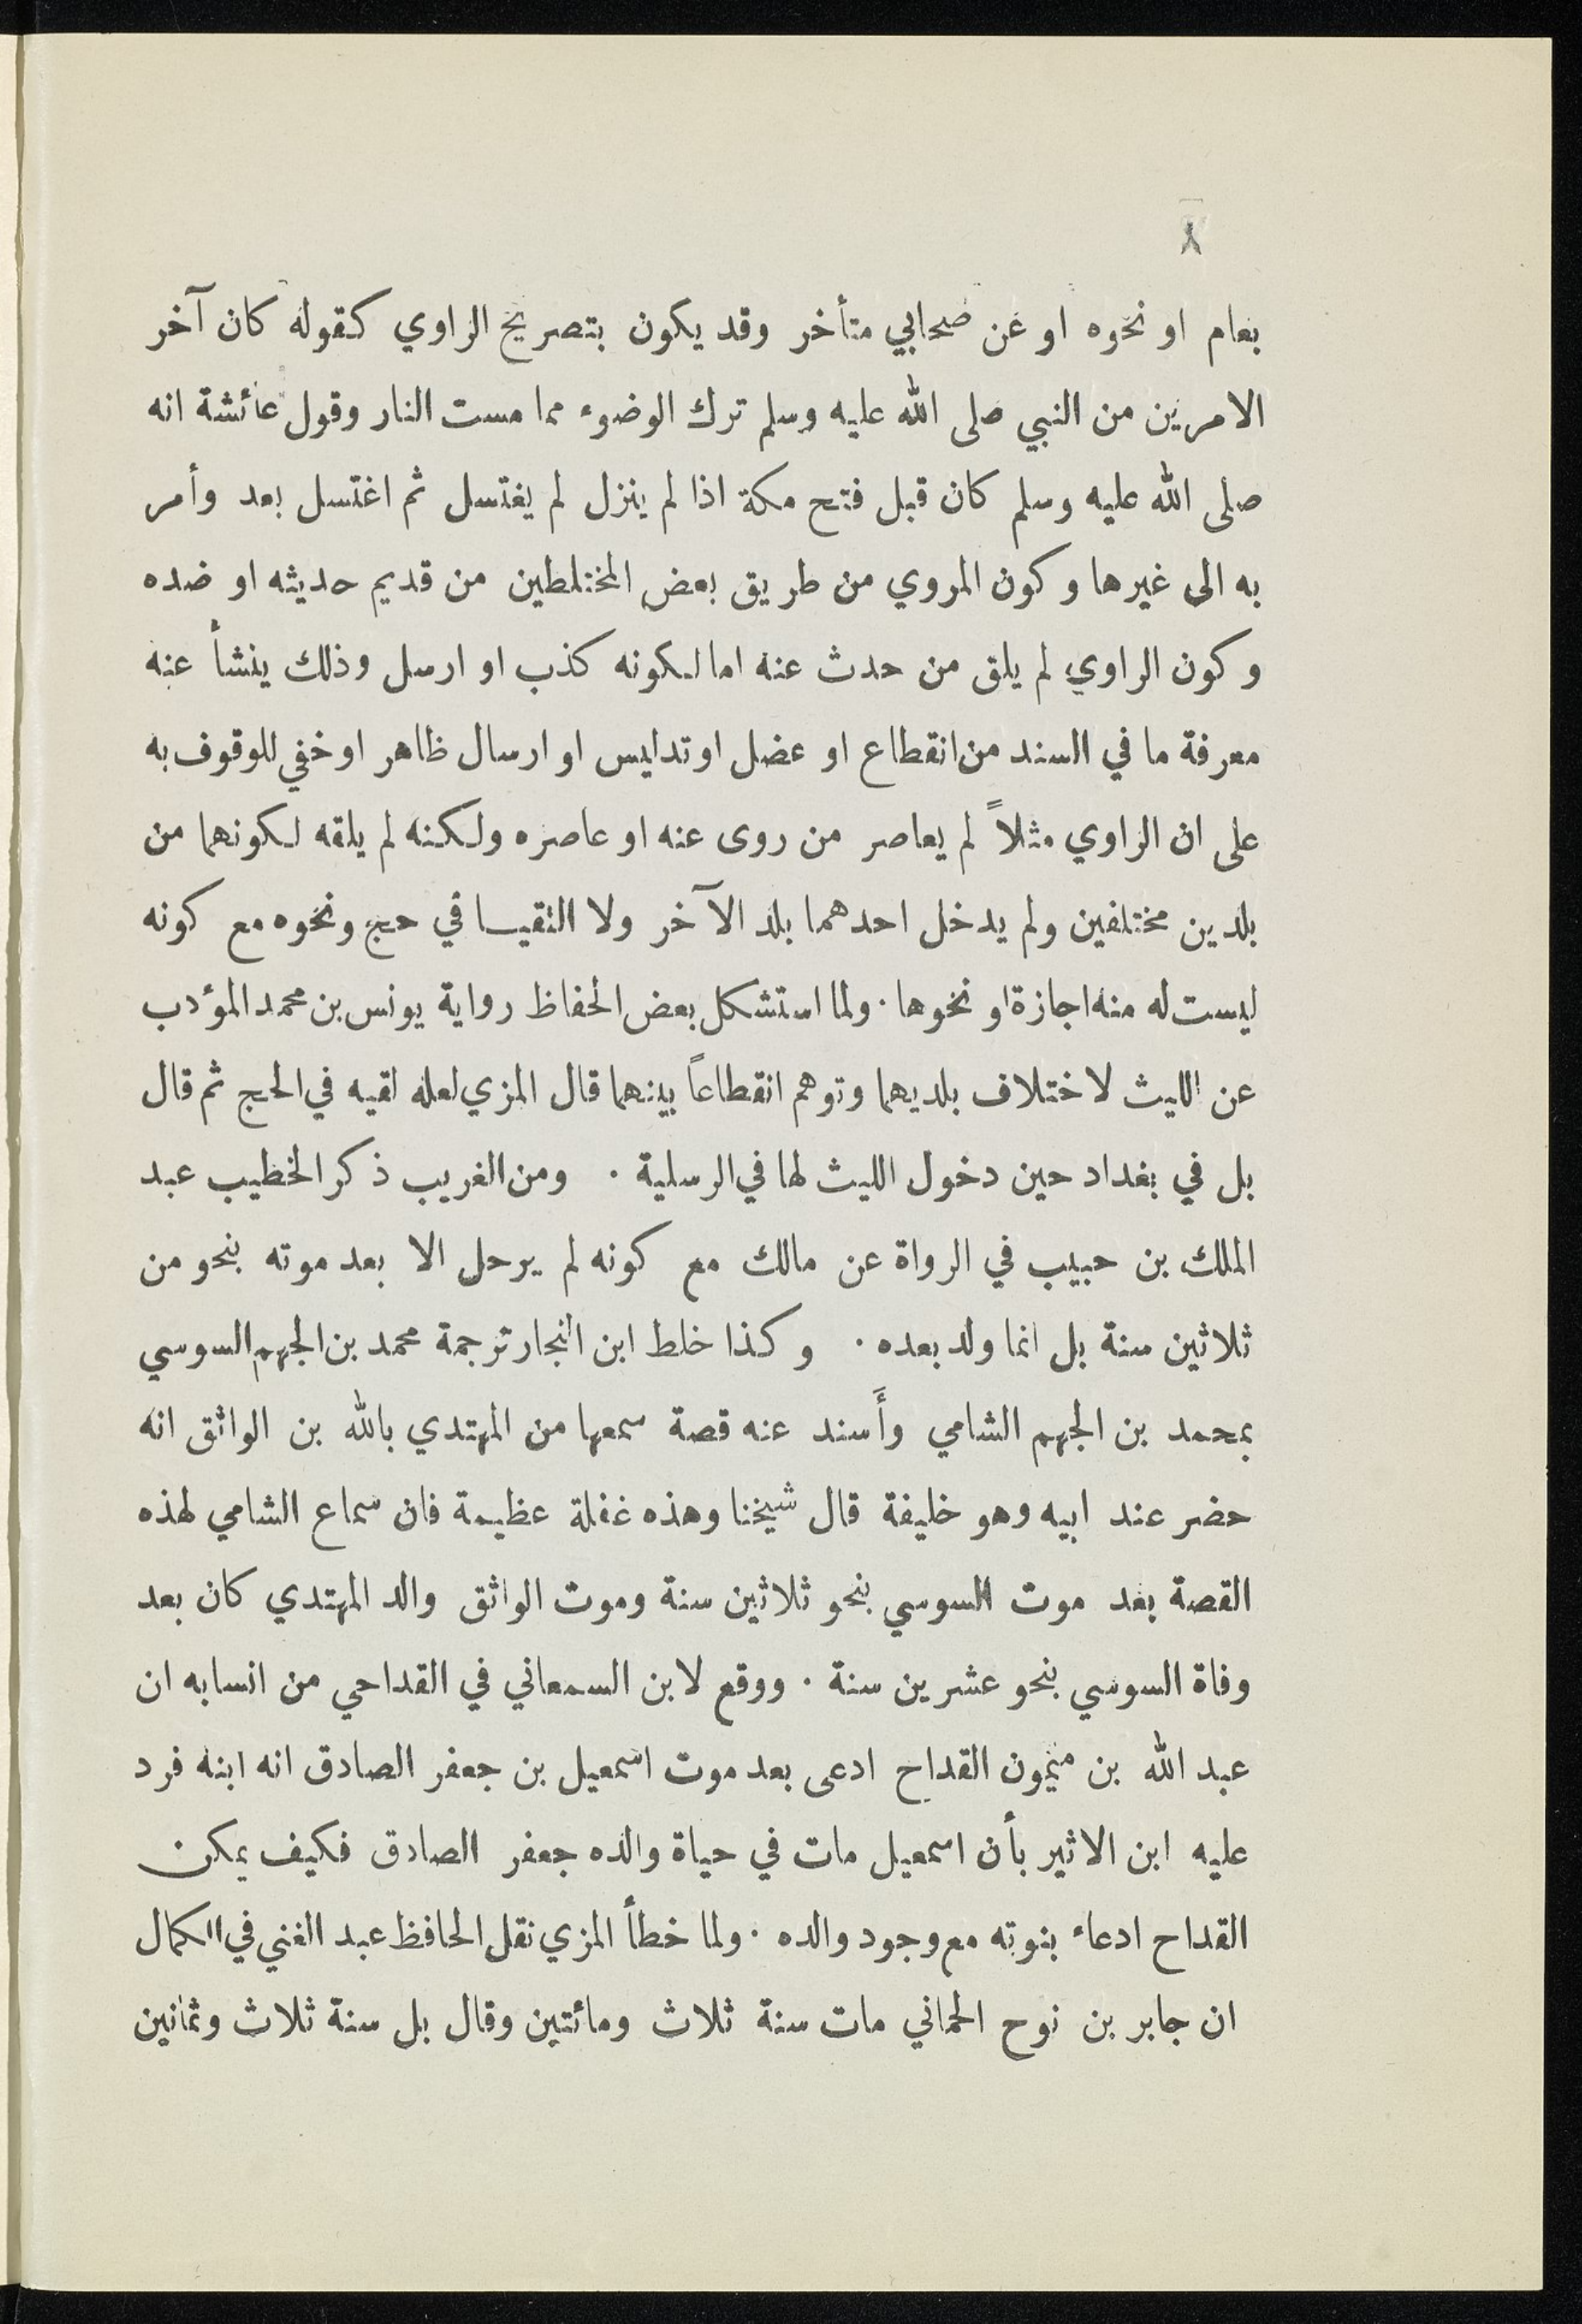 ٨
بعام او نحوه او عن صحابي متأخر وقد يكون بتصريح الراوي كقوله كان آخر
الامرين من النبي صلى الله عليه وسلم ترك الوضوء مما مست النار وقول عائشة انه
صلى الله عليه وسلم كان قبل فتح مكة اذا لم ينزل لم يغتسل ثم اغتسل بعد وأمر
به الى غيرها وكون المروي من طريق بعض المختلطين من قديم حديثه او ضده
وكون الراوي لم يلق من حدث عنه اما لكونه كذب او ارسل وذلك ينشأ عنه
معرفة ما في السند من انقطاع او عضل او تدليس او ارسال ظاهر او خفي للوقوف به
على ان الراوي مثلاً لم يعاصر من روى عنه او عاصره ولكنه لم يلقه لكونهما من
بلدين مختلفين ولم يدخل احدهما بلد الآخر ولا التقيا في حج ونحوه مع كونه
ليست له منه اجازة او نحوها . ولما استشكل بعض الحفاظ رواية يونس بن محمد المؤدب
عن الليث لاختلاف بلديهما وتوهم انقطاعاً بينهما قال المزي لعله لقيه في الحج ثم قال
بل في بغداد حين دخول الليث لها في الرسلية . ومن الغريب ذكر الخطيب عبد
الملك بن حبيب في الرواة عن مالك مع كونه لم يرحل الا بعد موته بنحو من
ثلاثين سنة بل انما ولد بعده . وكذا خلط ابن النجار ترجمة محمد بن الجهم السوسي
بمحمد بن الجهم الشامي وأَسند عنه قصة سمعها من المهتدي بالله بن الواثق انه
حضر عند ابيه وهو خليفة قال شيخنا وهذه غفلة عظيمة فان سماع الشامي لهذه
القصة بعد موت السوسي بنحو ثلاثين سنة وموت الواثق والد المهتدي كان بعد
وفاة السوسي بنحو عشرين سنة . ووقع لابن السمعاني في القداحي من انسابه ان
عبد الله بن ميمون القداح ادعى بعد موت اسمعيل بن جعفر الصادق انه ابنه فرد
عليه ابن الاثير بأن اسمعيل مات في حياة والده جعفر الصادق فكيف يمكن
القداح ادعاء بنوته مع وجود والده . ولما خطأ المزي نقل الحافظ عبد الغني في الكمال
ان جابر بن نوح الحماني مات سنة ثلاث ومائتين وقال بل سنة ثلاث وثمانين